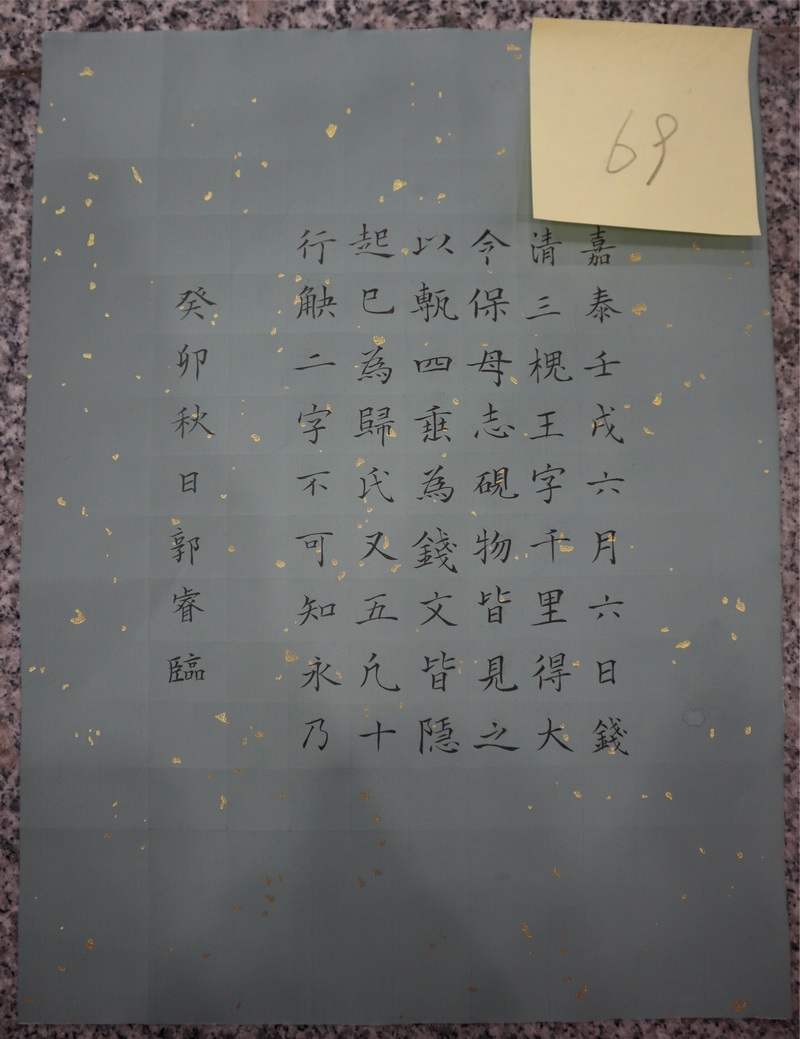 嘉泰壬戌六月六日錢
清三槐王字千里得大
令保母志硯物皆見之
以甎四垂為錢文皆隱
起已為歸氏又五凡十
行觖二字不可知永乃
癸卯秋日郭睿臨
69